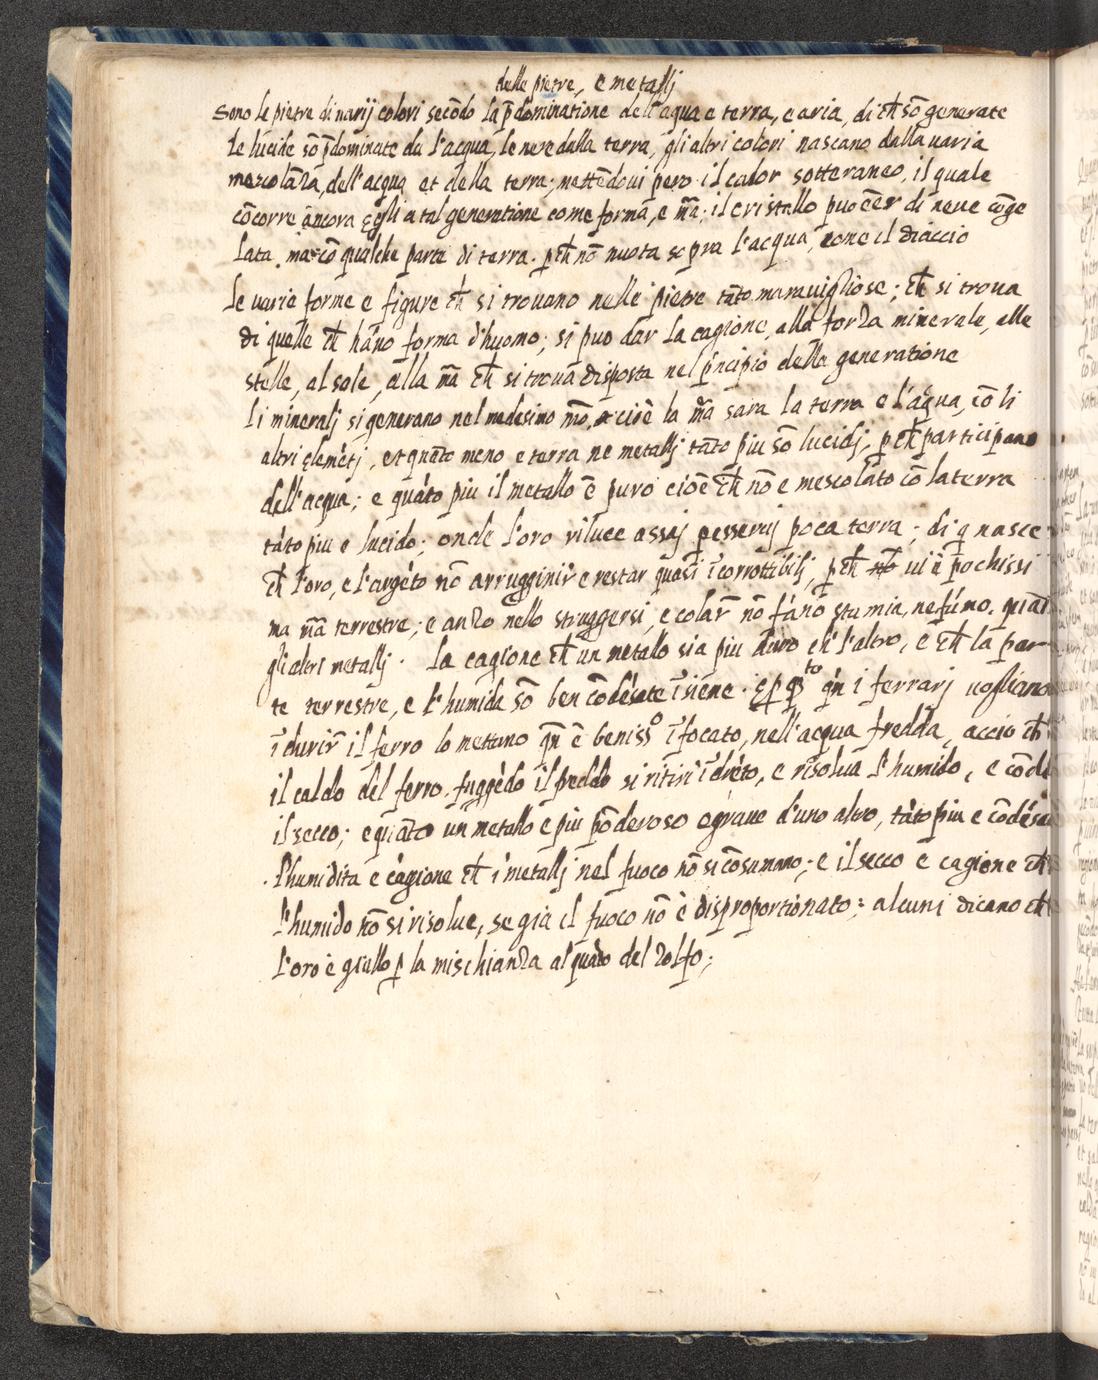 delle pietre, e metallj
Sono le pietre di varij colori secōdo la p̄dominatione dell'aqua e terra, e aria, di ch̄ sō generate
Le lucide sō p̄dominate da l'acqua, le nere dalla terra, gli altri colori nascano dalla varia
mescolāza, dell'acqua et della terra; mettēdoui pero il calor sotteraneo, il quale
cōcorre ancora egli a tal generatione come forma, e m̄a; il cristallo puo ēer di neue cōge
lata, ma cō qualche parte di terra. p ch̄ nō nuota sopra l'acqua, come il diaccio
Le varie forme e figure ch̄ si trouano nelle pietre tāto marauigliose; ch̄ si troua
di quelle ch̄ hāno forma d'huomo; si puo dar la cagione, alla forza minerale, alle
stelle, al sole, alla m̄a ch̄ si trouā disposta nel p̄ncipio della generatione
Li mineralj si generano nel medesimo m̄o, cioè la m̄a sara la terra e l'aqua, cō li
altri elemētj, et quāto meno e terra ne metallj tāto piu sō lucidj, p ch̄ participano
dell'acqua; e quāto piu il metallo ē puro cioē ch̄ nō e mescolato cō la terra
tāto piu e lucido; onde l'oro riluce assaj p esseruj poca terra; di q nasce
ch̄ l'oro, e l'argēto nō arrugginir̄ e restar quasi īcorrottibilj, p ch̄ ui è pochissi
ma m̄a terrestre; e anzo nello struggersi, e colar̄ nō fāno stumia, ne fumo. quāt
gli altri metallj. La cagione ch̄ un metallo sia piu duro ch' l'altro, e ch̄ la par
te terrestre, e l'humida sō ben cōdēsate īsiene. E p q̄to q̄n i ferrarj uogliano
īdurir̄ il ferro lo mettano q̄n ē beniss° īfocato, nell'acqua fredda, accio ch̄
il caldo del ferro, fuggēdo il freddo si ritiri īdrēto, e risolua l'humido, e cōdē
il secco; e quāto un metallo e piu pōderoso e graue d'uno altro, tāto piu e cōdēsa
l'humidita e cagione ch̄ i metallj nel fuoco nō si cōsumano; e il secco e cagione ch̄
l'humido nō si risolue, se gia il fuoco nō è disproportionato; alcuni dicano ch̄
l'oro è giallo p la mischianza al quāto del zolfo;